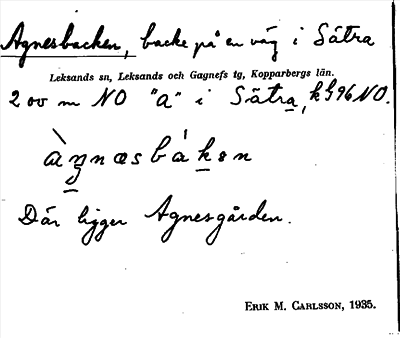 Agnesbacken, backe på en väg i Sätra
Leksands sn, Leksands och Gagnefs tg, Kopparbergs län.
200 m NO "a" i Sätra, k 96 NO.
Där ligger Agnesgården.
ERIK M. CARLSSON, 1935.